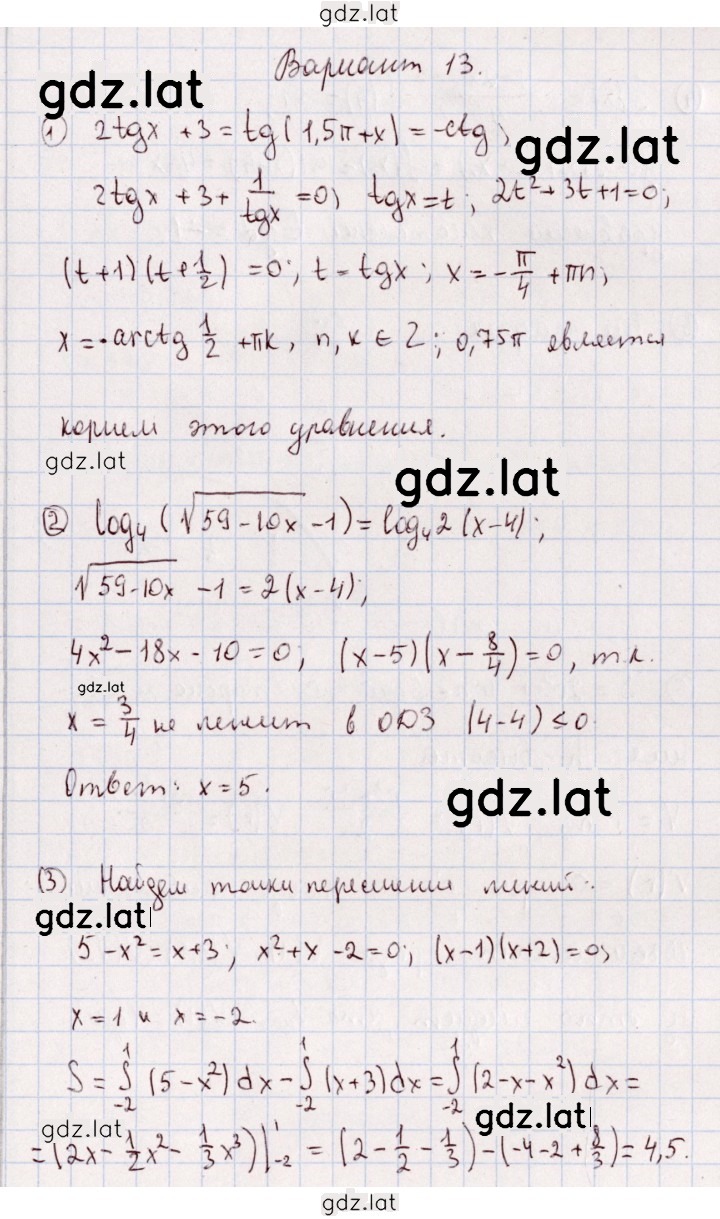 gdz.lat
Вариант 13.
gdz.lat
① 2tgx + 3 = tg(1,5π+x) = -ctg;
gdz.lat
2tgx + 3 + 1/tgx = 0; tgx = t; 2t² + 3t + 1 = 0;
(t+1)(t+1/2) = 0; t = tgx; x = -π/4 + πn;
x = -arctg 1/2 + πk, n, k ∈ Z; 0,75π является
корнем этого уравнения.
gdz.lat
gdz.lat
② log₄(√(59-10x) -1) = log₄2(x-4);
√(59-10x) -1 = 2(x-4);
4x² - 18x - 10 = 0; (x-5)(x - 8/4) = 0, т.к.
gdz.lat
x = 3/4 не лежит в ОДЗ (4-4) ≤ 0.
Ответ: x = 5.
gdz.lat
(3) Найдем точки пересечения линий:
gdz.lat
5 - x² = x + 3; x² + x - 2 = 0; (x-1)(x+2) = 0;
x = 1 и x = -2.
S = ∫₋₂¹ (5-x²)dx - ∫₋₂¹ (x+3)dx = ∫₋₂¹ (2-x-x²)dx =
gdz.lat
gdz.lat
= (2x - 1/2x² - 1/3x³)|₋₂¹ = (2 - 1/2 - 1/3) - (-4-2+8/3) = 4,5.
gdz.lat